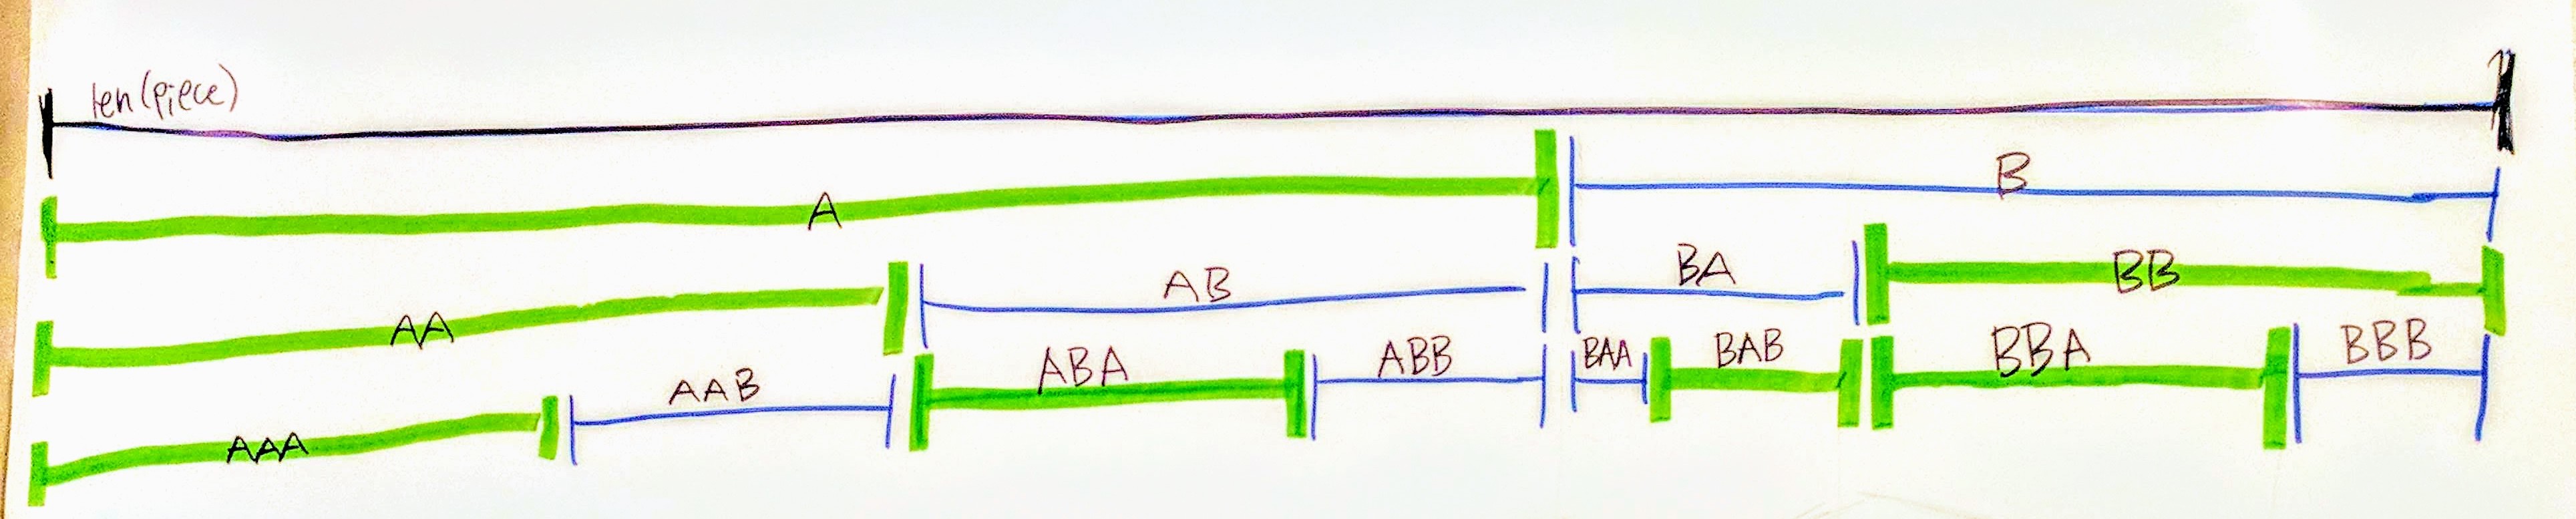 len(piece)
A B
AA AB BA BB
AAA AAB ABA ABB BAA BAB BBA BBB